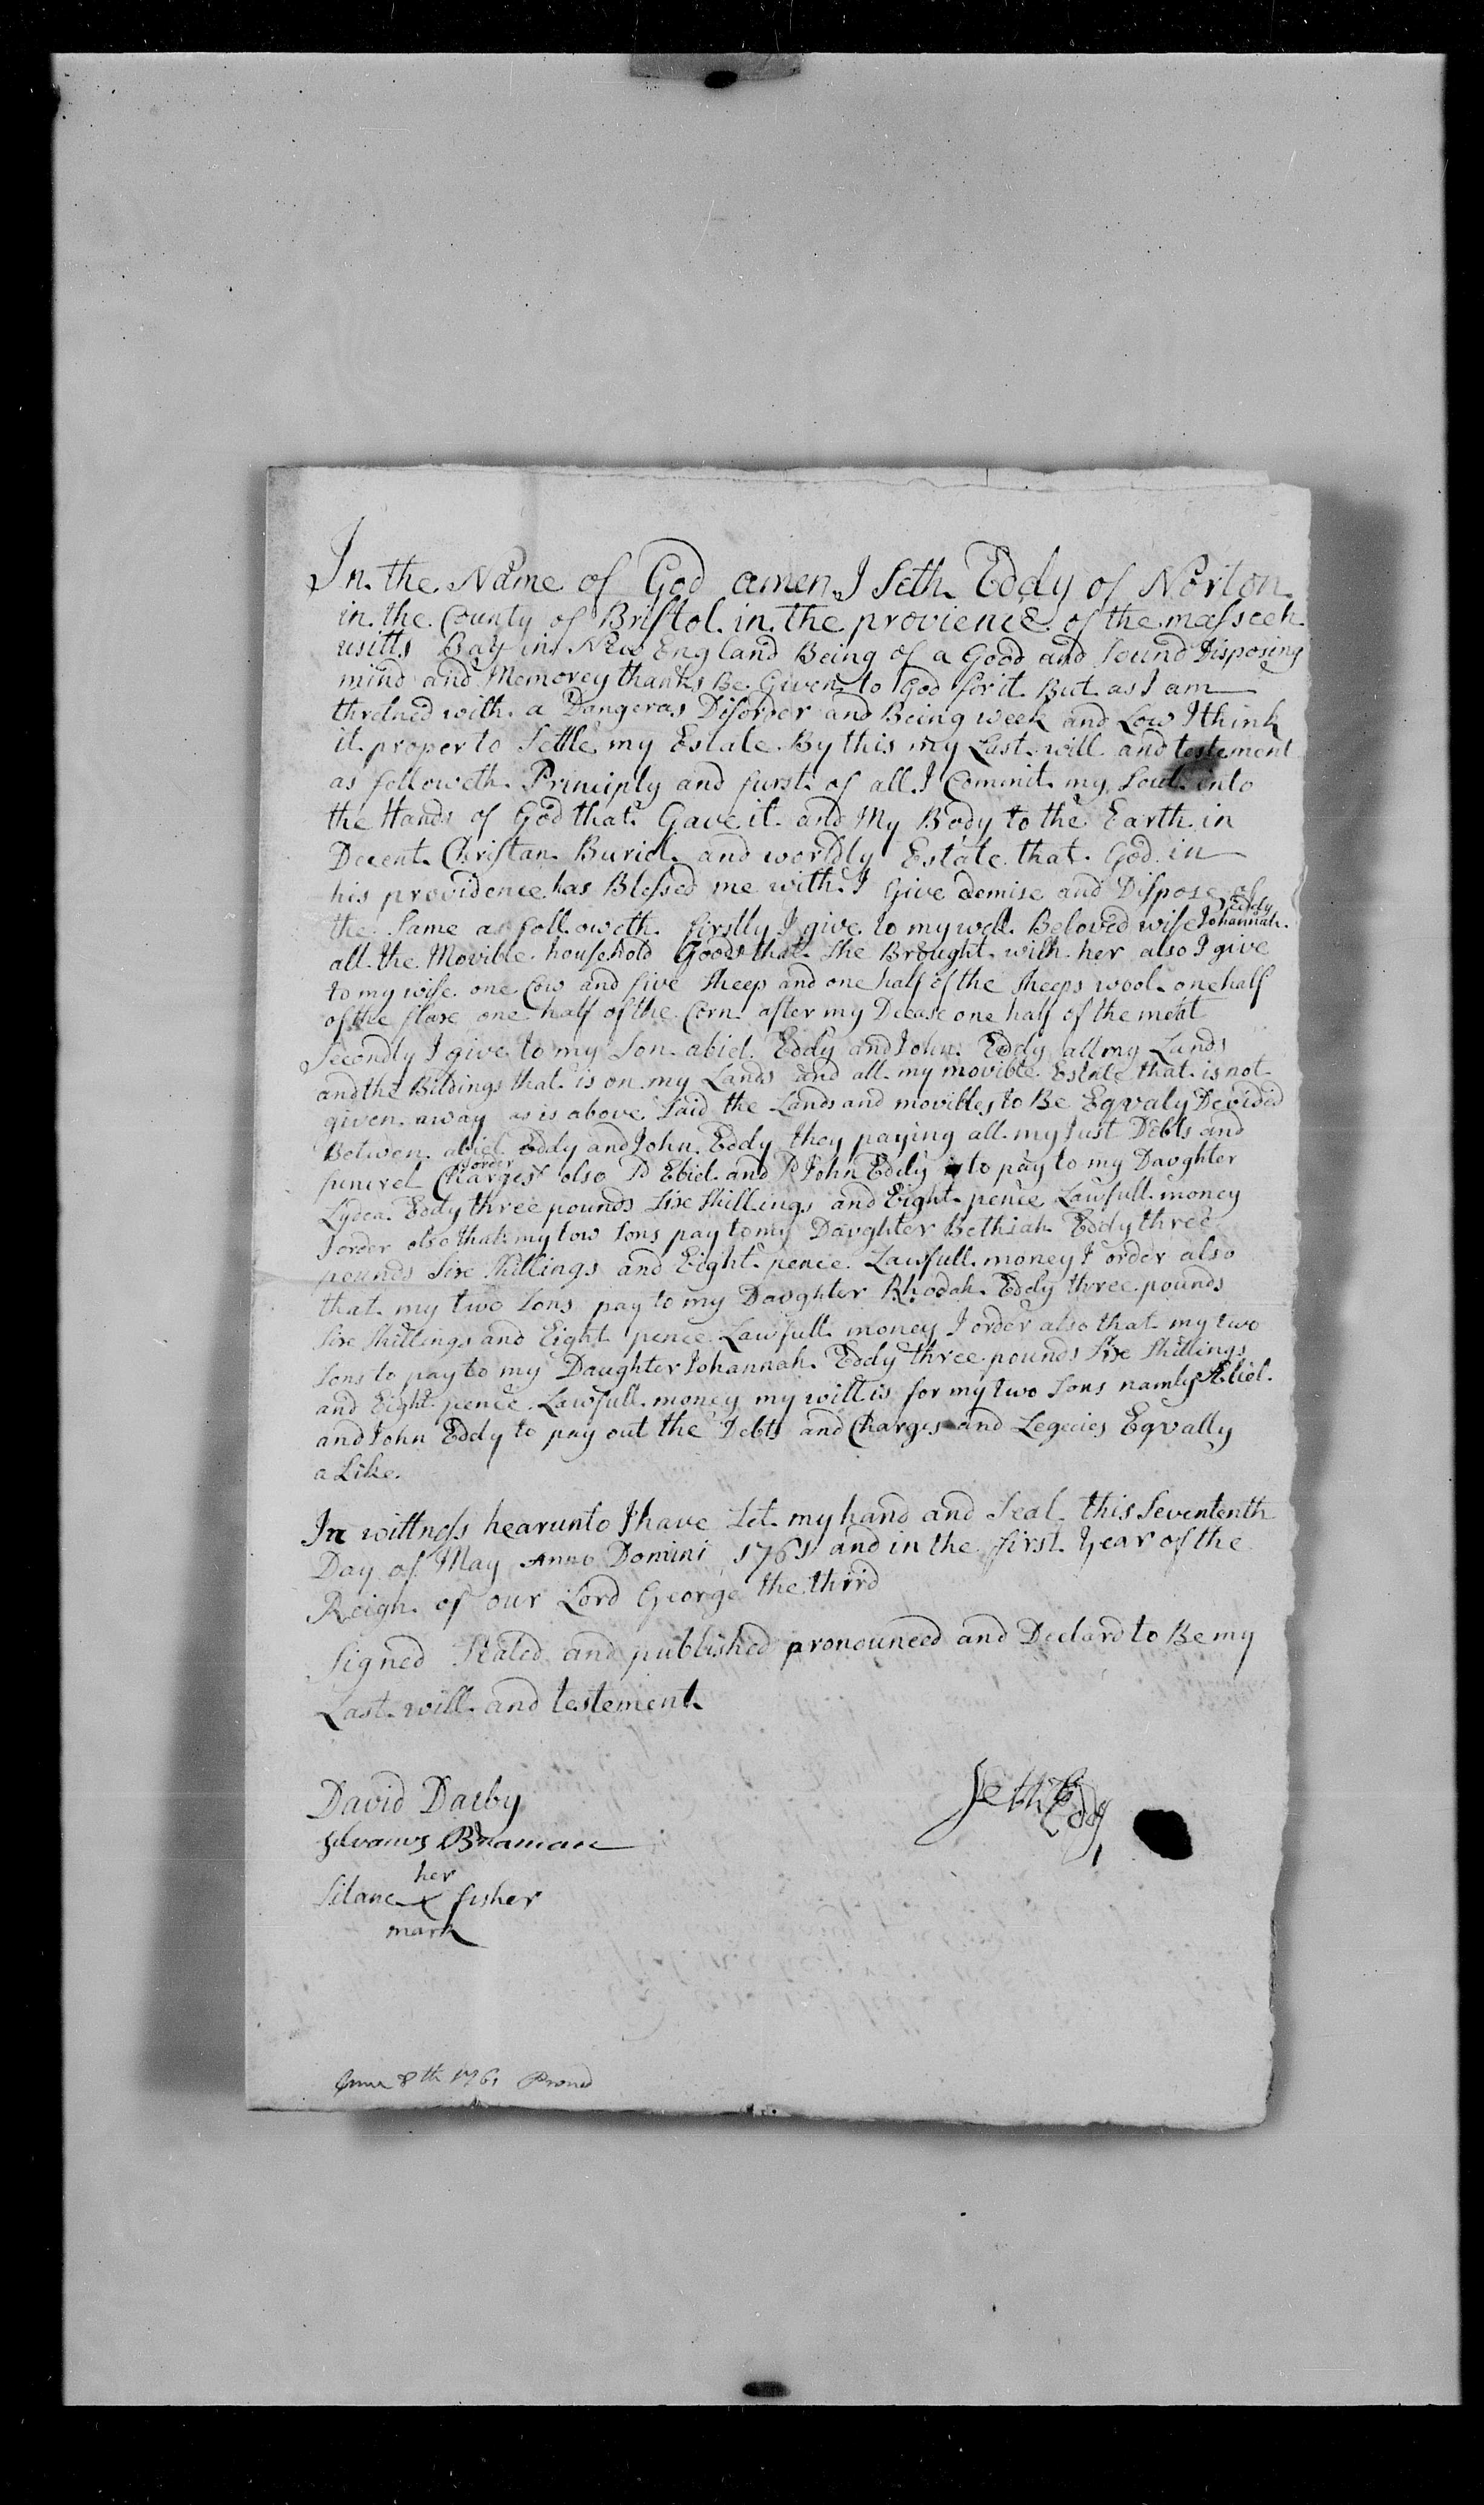 In the Name of God amen I Seth Eddy of Norton
in the County of Bristol in the provience of the massech
usitts Bay in New England Being of a Good and Sound Disposing
mind and Memorey thanks Be Given to God for it But as I am
thretned with a Dangeras Disorder and Being week and Low I think
it proper to Settle my Estate By this my Last will and testement
as followeth Principly and furst of all I Commit my Soul into
the Hands of God that Gave it and My Body to the Earth in
Decent Christan Buriel and worldly Estate that God in
his providence has Blessed me with I Give demise and Dispose of
the Same as followeth firstly I give to my well Beloved wife Johannah Eddy
all the Movible household Goods that She Brought with her also I give
to my wife one Cow and five Sheep and one half of the Sheeps wool one half
of the flax one half of the Corn after my Decease one half of the meat
Secondly I give to my Son abiel Eddy and John Eddy all my Lands
and the Bildings that is on my Lands and all my movible Estate that is not
given away as is above Said the Lands and movibles to Be Eqvaly Devided
Betwen abiel Eddy and John Eddy they paying all my Just Debts and
funerel Charges I order also Sd Ebiel and Sd John Eddy to pay to my Davghter
Lydea Eddy three pounds Six Shillings and Eight pence Lawfull money
I order also that my tow Sons pay to my Davghter Bethiah Eddy three
pounds Six Shillings and Eight pence Lawfull money I order also
that my two Sons pay to my Davghter Rhodah Eddy three pounds
Six Shillings and Eight pence Lawfull money I order also that my two
Sons to pay to my Daughter Johannah Eddy three pounds Six Shillings
and Eight pence Lawfull money my will is for my two Sons namly Abiel
and John Eddy to pay out the Debts and Charges and Legecies Eqvally
a Like
In wittness hearunto I have Set my hand and Seal this Sevententh
Day of May Anno Domini 1761 and in the first Year of the
Reign of our Lord George the third
Signed Sealed and published pronounced and Declard to Be my
Last will and testement
David Darby
Silvanus Braman
her
Silance X fisher
mark
Seth Eddy
June 8th 1761 Proved